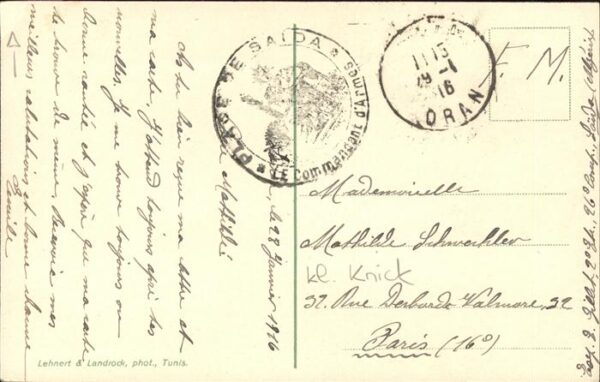 le 28 Janvier 1916
Mathilde
As tu bien reçue ma lettre et
ma carte. J'attend toujours après tes
nouvelles. Je me trouve toujours en
bonne santée et j'espère que ma carte
te trouve de même. Reçevie mes
meilleurs salutations et bonne chance
Emille
PLACE DE SAÏDA
LE Commandant d'Armes
1115
29 -1
16
ORAN
F. M.
Mademoiselle
Mathilde Schwechler
kl. Knick
32. Rue Desborde Valmore. 32
Paris (16e)
Lehnert & Landrock, phot., Tunis.
Saïda (Algérie)